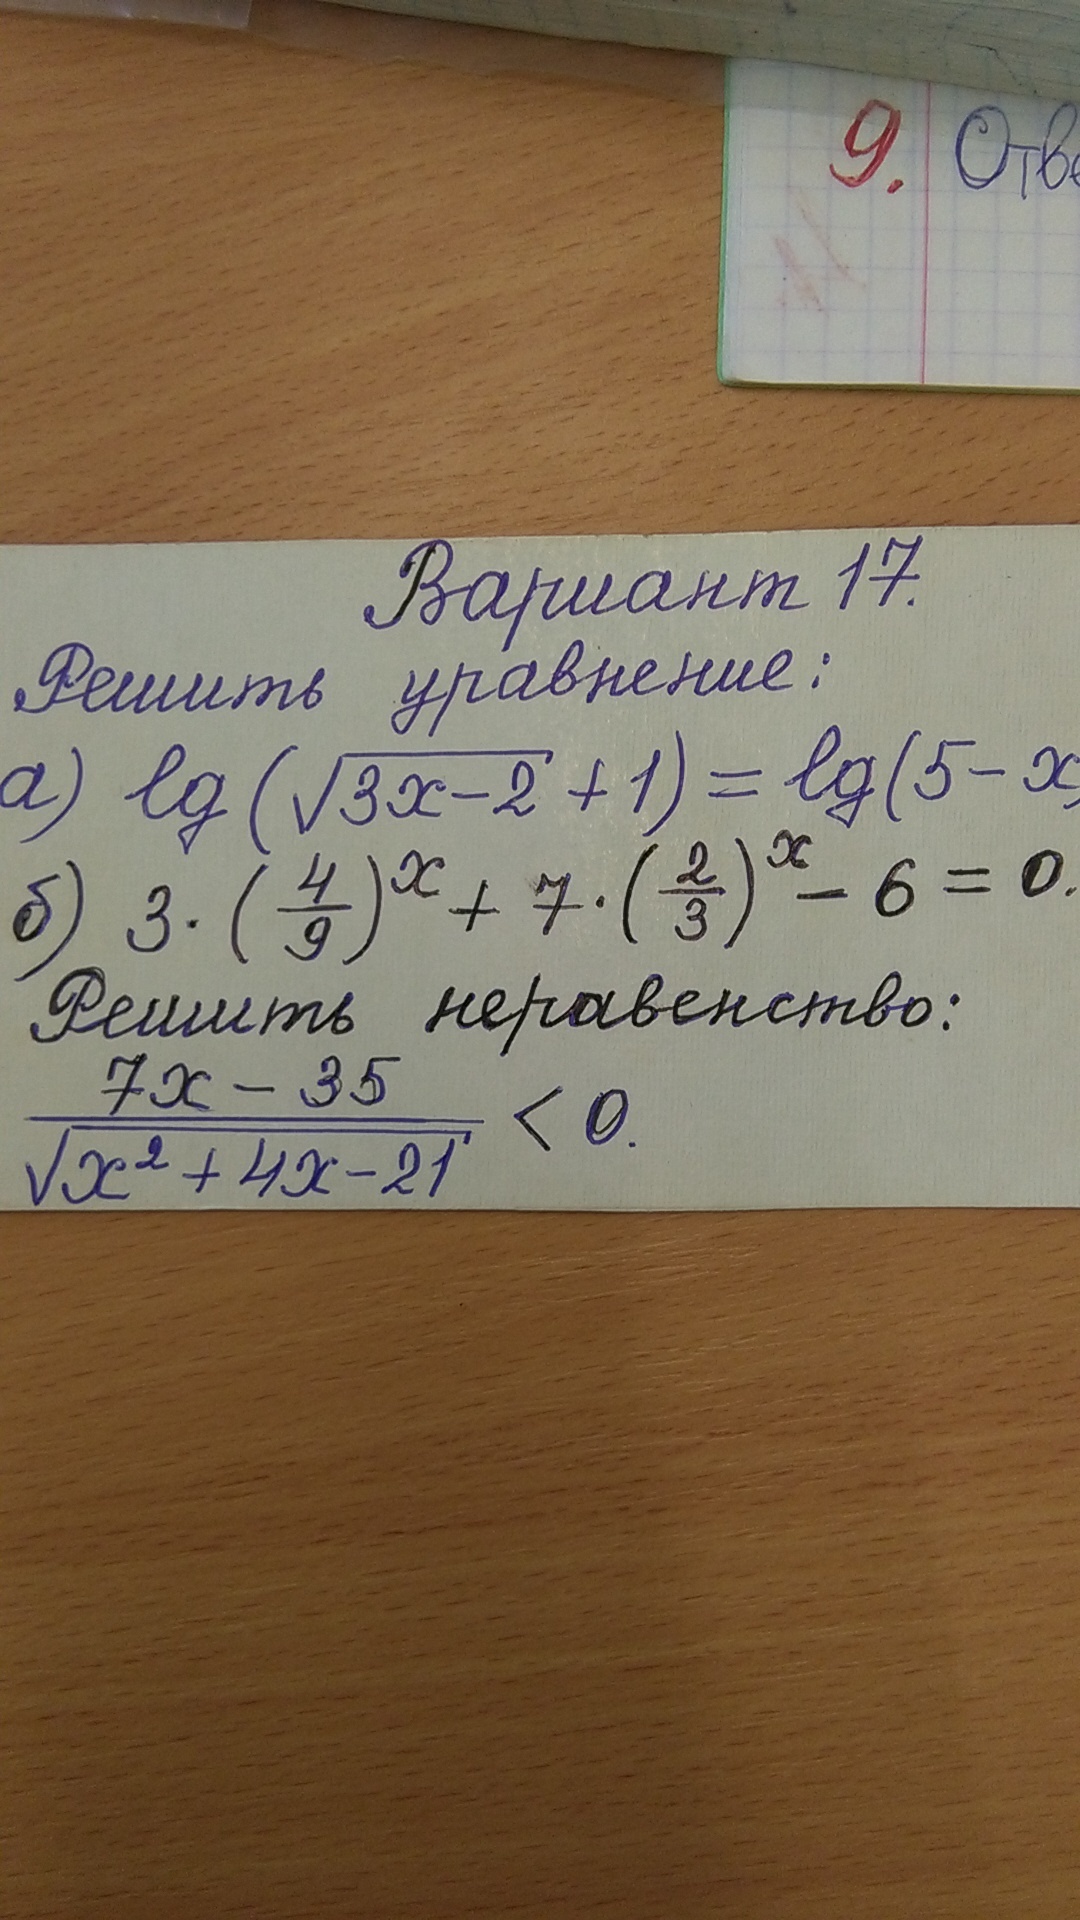 9. Отве
Вариант 17.
Решить уравнение:
а) lg(√(3x-2)+1)=lg(5-x)
б) 3·(4/9)^x + 7·(2/3)^x - 6 = 0.
Решить неравенство:
(7x - 35)/√(x² + 4x - 21) < 0.